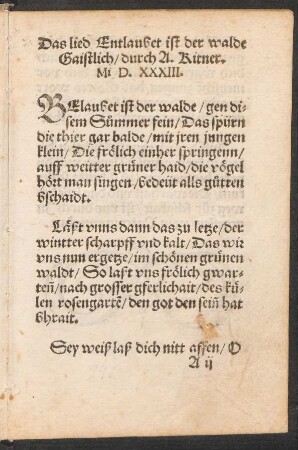 Das lied Entlaubet ist der walde
Gaistlich/ durch A. Ritner.
Mi D. XXXIII.
BElaubet ist der walde/ gen di-
sem Sum̃er fein/ Das spürn
die thier gar balde/ mit jren jungen
klein/ Die frölich einher springenn/
auff weitter grüner haid/ die vögel
hört man singen/ bedeüt alls gütten
bschaidt.
Laßt vnns dann das zu letze/ der
wintter scharpff vnd kalt/ Das wir
vns nun ergetze/ im schönen grünen
waldt/ So laßt vns frölich gwar-
tenn/ nach grosser gferlichait/ des kü-
len rosengartẽ/ den got den sein̄ hat
bhrait.
Sey weiß laß dich nitt affen/ O
A ij